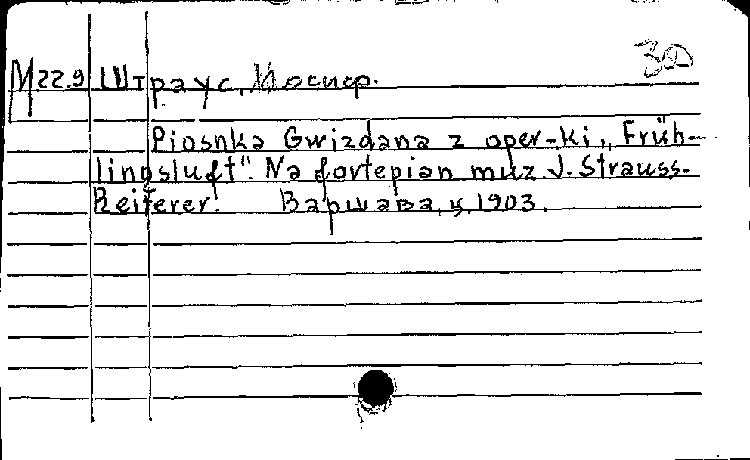 30
М22.9 Штраус, Иосиф.
Piosnka Gwizdana z oper-ki „Früh-
lingsluft". Na fortepian muz J. Strauss-
Reiterer. Варшава, ц. 1903.